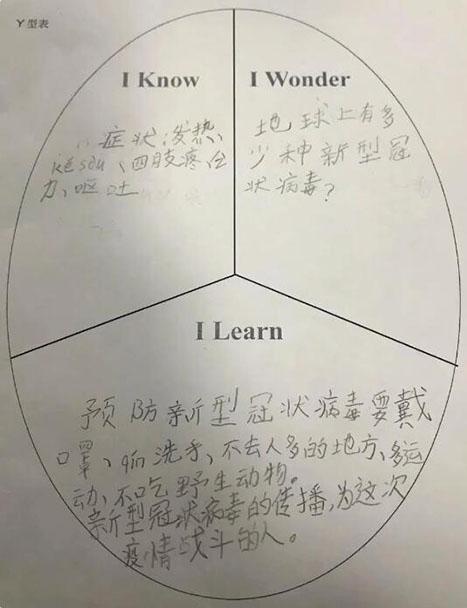 Y型表
I Know
症状:发热、
ké sòu、四肢疼、乏
力、呕吐
I Wonder
地球上有多
少种新型冠
状病毒?
I Learn
预防新型冠状病毒要戴
口罩、勤洗手、不去人多的地方、多运
动、不吃野生动物。
新型冠状病毒的传播,为这次
疫情战斗的人。